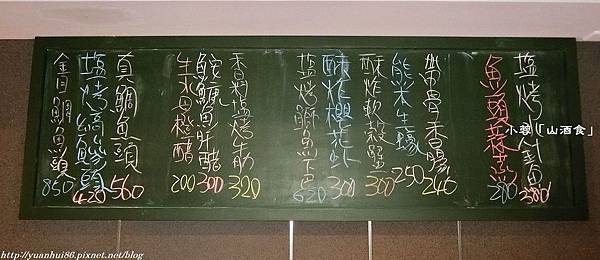 鹽烤小卷 380
魚頭蒜 280
帶骨香腸 240
熊本生蠔 250
酥炸軟殼蟹 300
酥炸櫻花蝦 300
鹽烤鰤魚下巴 620
香料鹽烤牛肋 320
鮟鱇魚肝醋 300
生水魚橙醋 200
真鯛魚頭 560
鹽烤 420
金目鯛魚頭 850
小蓉「山酒食」
http://yuanhui86.pixnet.net/blog